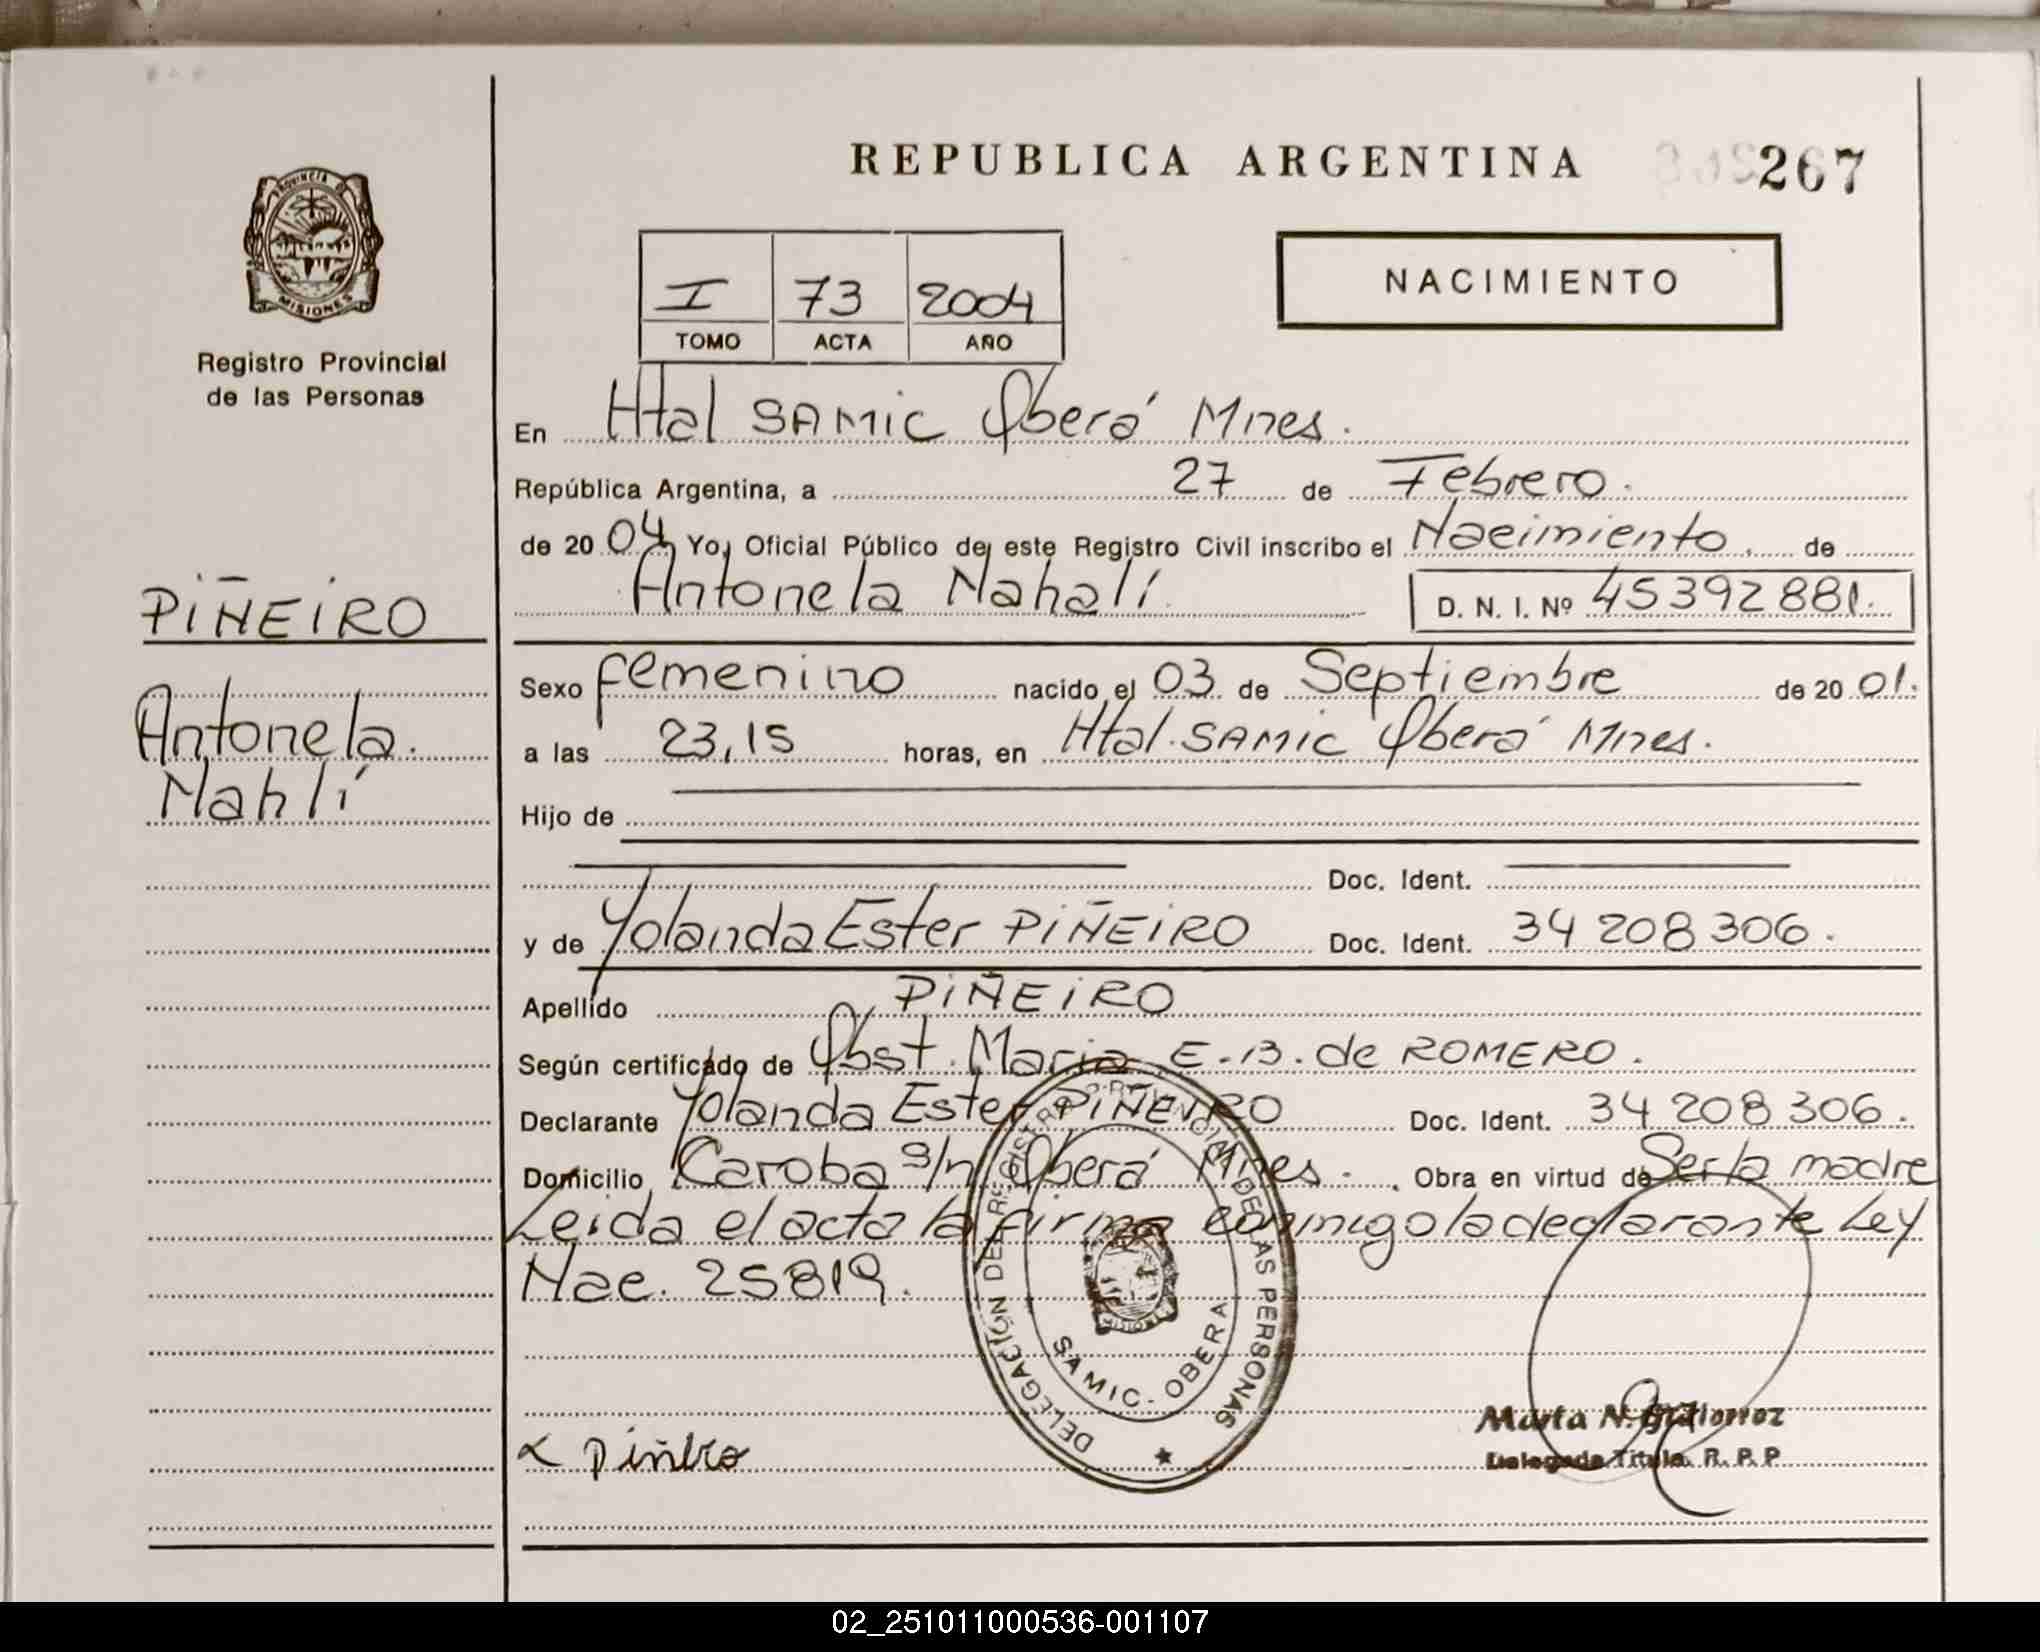 REPUBLICA ARGENTINA
267
PROVINCIA DE
MISIONES
Registro Provincial
de las Personas
I 73 2004
TOMO ACTA AÑO
NACIMIENTO
En Htal SAMIC Oberá Mnes.
República Argentina, a 27 de Febrero.
de 20 04 Yo, Oficial Público de este Registro Civil inscribo el Nacimiento. de
Antonela Nahalí D. N. I. Nº 45392881.
PIÑEIRO
Antonela.
Nahlí
Sexo femenino nacido el 03 de Septiembre de 20 01.
a las 23,15 horas, en Htal. SAMIC Oberá Mnes.
Hijo de
Doc. Ident.
y de Yolanda Ester PIÑEIRO Doc. Ident. 34 208 306.
Apellido PIÑEIRO
Según certificado de Obst. Maria E. B. de ROMERO.
Declarante Yolanda Ester PIÑEIRO Doc. Ident. 34 208 306.
Domicilio Caroba s/n Oberá Mnes. Obra en virtud de Ser la madre
Leida el acta la firma conmigo la declarante Ley
Nac. 25819.
DELEGACIÓN DEL REGISTRO PROVINCIAL DE LAS PERSONAS
MISIONES
SAMIC - OBERA
Marta N. Gutierrez
Delegada Titular R. P. P
02_251011000536-001107